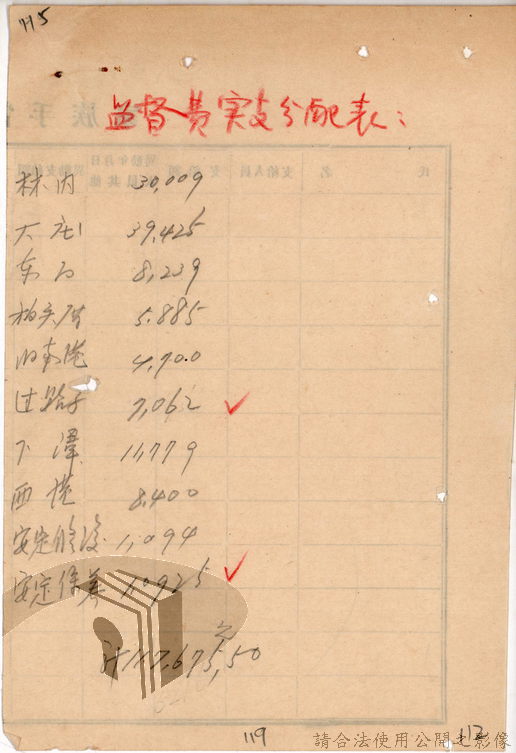 115
監督費実支分配表：
林内 30,009
大庄 39,425
东石 8,239
柏头厝 5.885
4,70.0
过路子 7,062
下潭 11,779
西港 8,400
安定 1,094
安定 10,925
計 117,675,50
119
112
請合法使用公開之影像